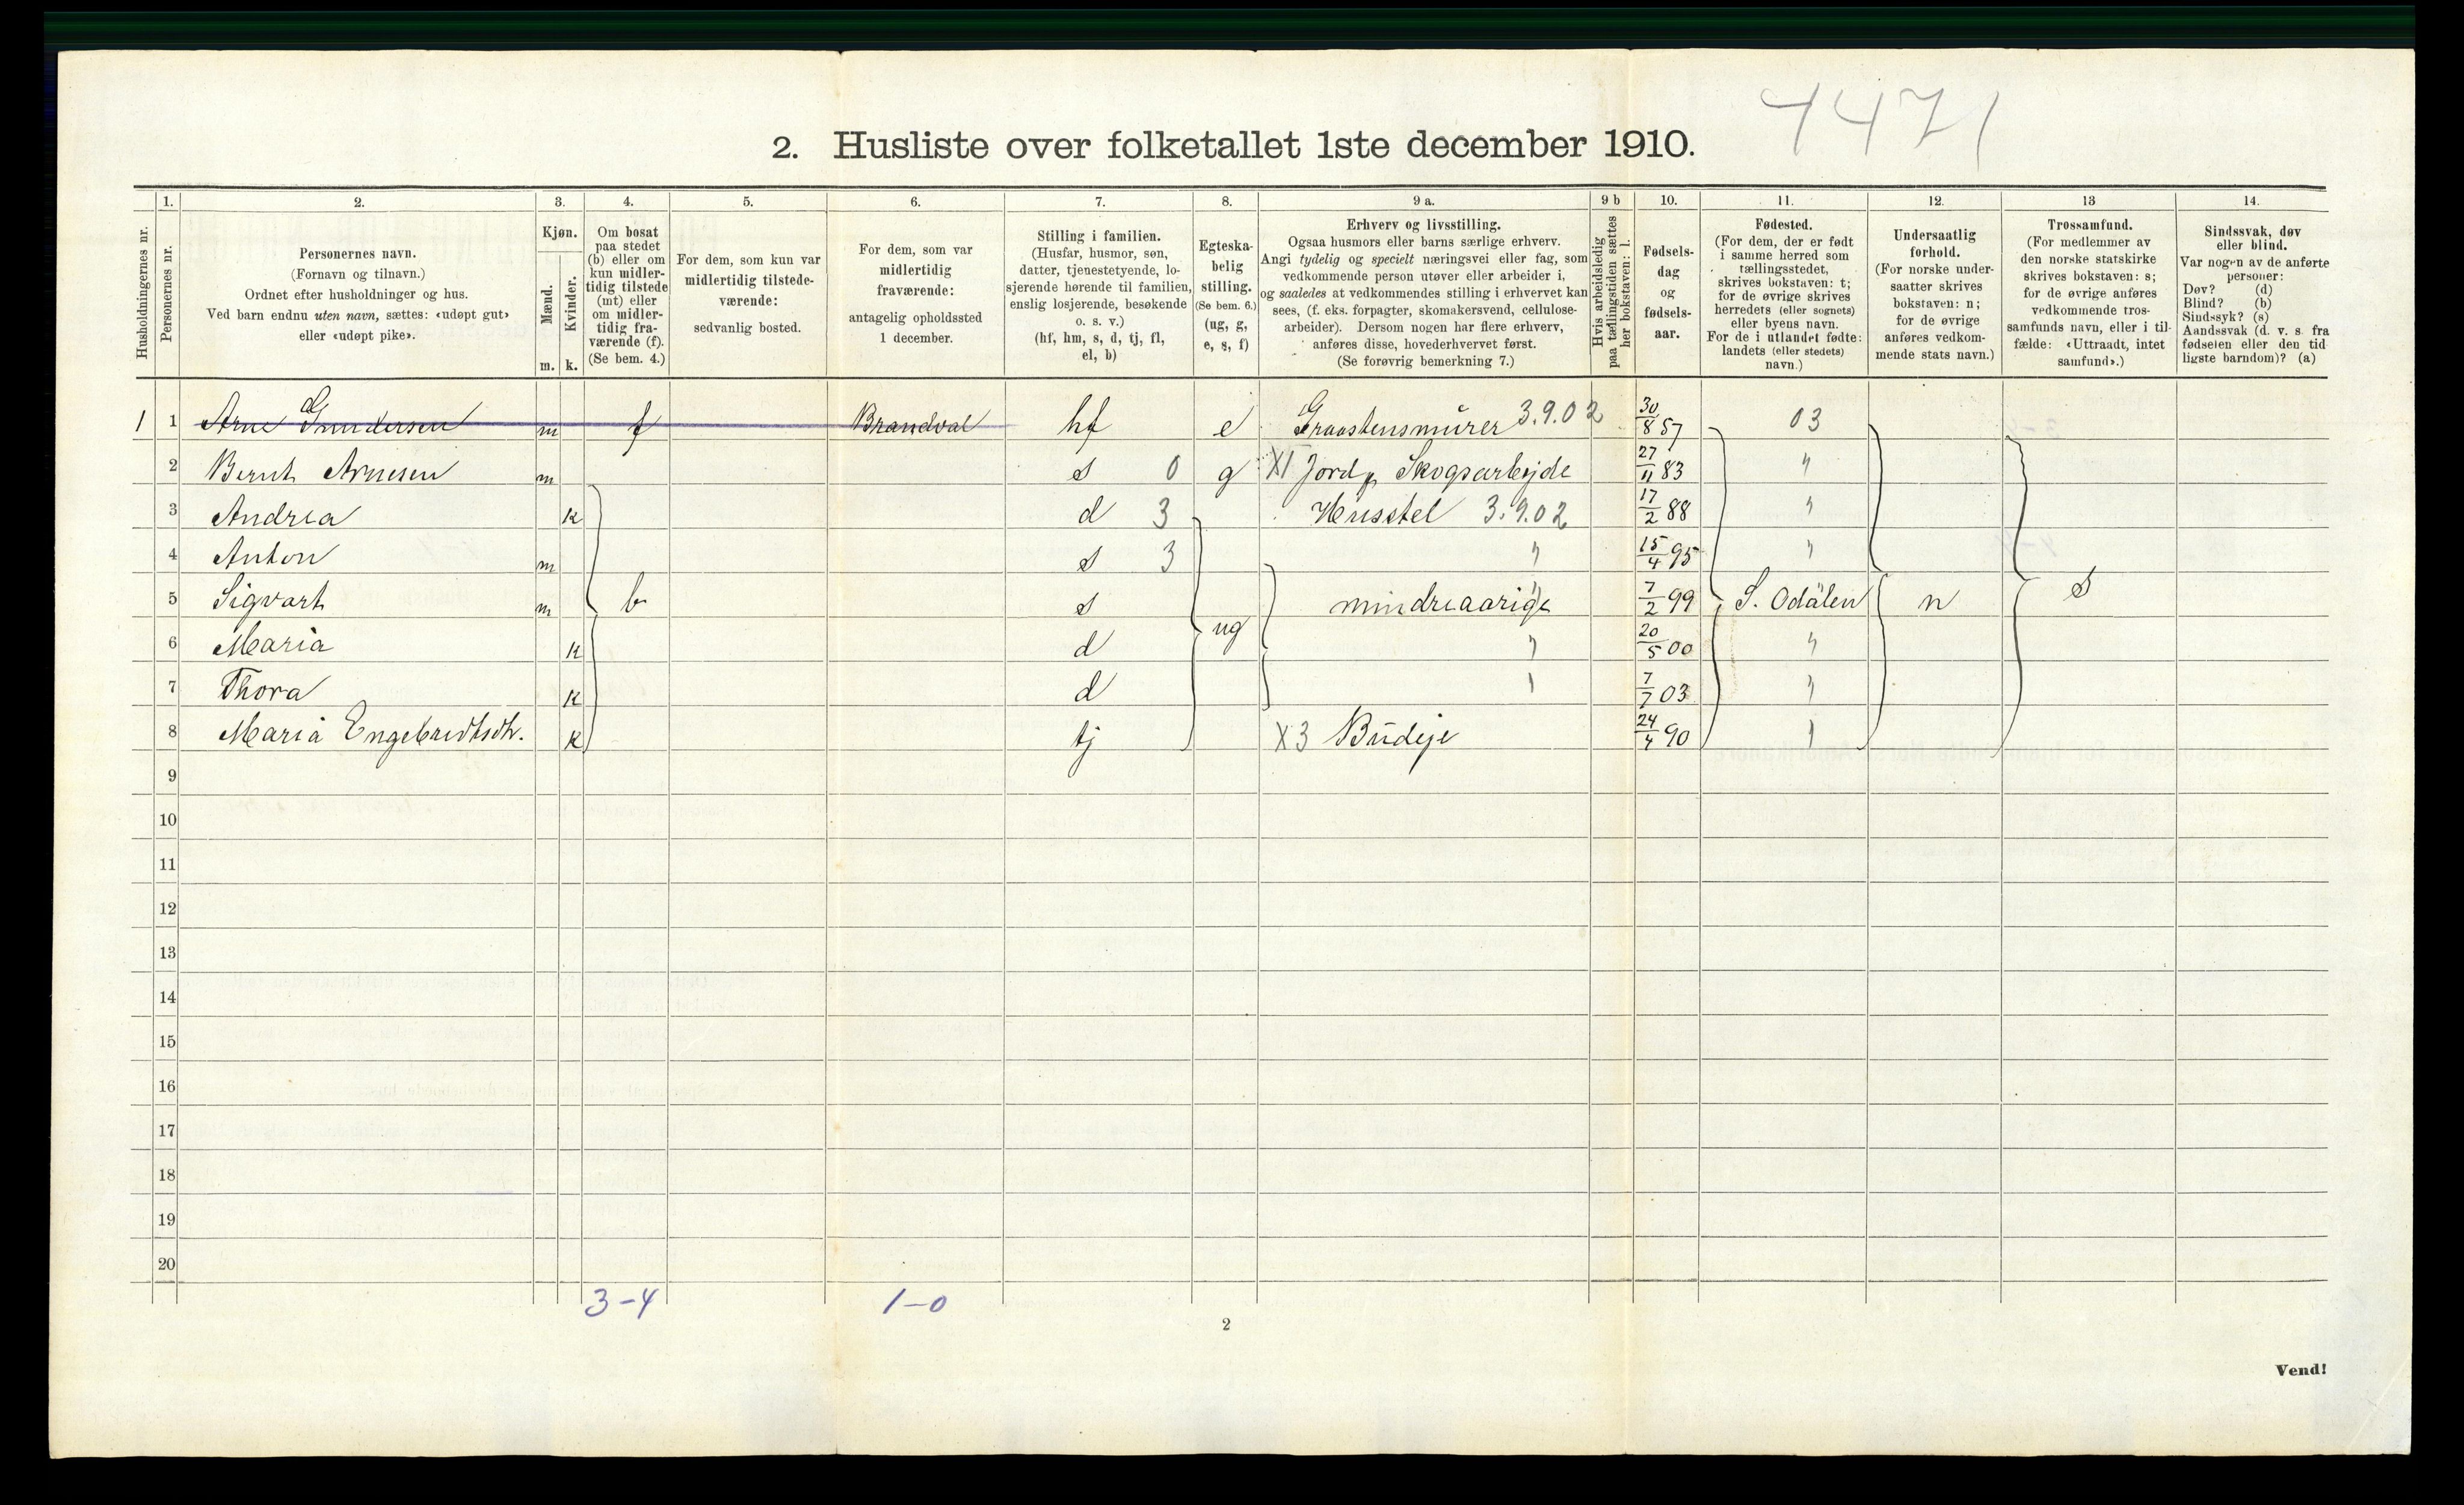 4471
2. Husliste over folketallet 1ste december 1910.
Husholdningernes nr.
1.
Personernes nr.
2.
Personernes navn.
(Fornavn og tilnavn.)
Ordnet efter husholdninger og hus.
Ved barn endnu uten navn, sættes: «udøpt gut»
eller «udøpt pike».
3.
Kjøn.
Mænd.
Kvinder.
m. k.
4.
Om bosat
paa stedet
(b) eller om
kun midler-
tidig tilstede
(mt) eller
om midler-
tidig fra-
værende (f).
(Se bem. 4.)
5.
For dem, som kun var
midlertidig tilstede-
værende:
sedvanlig bosted.
6.
For dem, som var
midlertidig
fraværende:
antagelig opholdssted
1 december.
7.
Stilling i familien.
(Husfar, husmor, søn,
datter, tjenestetyende, lo-
sjerende hørende til familien,
enslig losjerende, besøkende
o. s. v.)
(hf, hm, s, d, tj, fl,
el, b)
8.
Egteska-
belig
stilling.
(Se bem. 6.)
(ug, g,
e, s, f)
9 a.
Erhverv og livsstilling.
Ogsaa husmors eller barns særlige erhverv.
Angi tydelig og specielt næringsvei eller fag, som
vedkommende person utøver eller arbeider i,
og saaledes at vedkommendes stilling i erhvervet kan
sees, (f. eks. forpagter, skomakersvend, cellulose-
arbeider). Dersom nogen har flere erhverv,
anføres disse, hovederhvervet først.
(Se forøvrig bemerkning 7.)
9 b
Hvis arbeidsledig
paa tællingstiden sættes
her bokstaven: l.
10.
Fødsels-
dag
og
fødsels-
aar.
11.
Fødested.
(For dem, der er født
i samme herred som
tællingsstedet,
skrives bokstaven: t;
for de øvrige skrives
herredets (eller sognets)
eller byens navn.
For de i utlandet fødte:
landets (eller stedets)
navn.)
12.
Undersaatlig
forhold.
(For norske under-
saatter skrives
bokstaven: n;
for de øvrige
anføres vedkom-
mende stats navn.)
13
Trossamfund.
(For medlemmer av
den norske statskirke
skrives bokstaven: s;
for de øvrige anføres
vedkommende tros-
samfunds navn, eller i til-
fælde: «Uttraadt, intet
samfund».)
14.
Sindssvak, døv
eller blind.
Var nogen av de anførte
personer:
Døv? (d)
Blind? (b)
Sindssyk? (s)
Aandssvak (d. v. s. fra
fødselen eller den tid-
ligste barndom)? (a)
1 1 Arne Gundersen m f Brandval hf e Graastensmürer 3.9.02 30/8 57 03
2 Bernt Arnesen m s 0 g X1 Jord & Skogsarbejde 27/11 83 "
3 Andrea k d 3 Husstel 3.9.02 17/2 88 "
4 Anton m s 3 " 15/4 95 "
5 Sigvart m b s mindreaarige 7/2 99 S. Odälen n s
6 Maria k d ug " 20/5 00 "
7 Thora k d " 7/7 03 "
8 Maria Engebredtsdtr. k tj X3 Büdeje 24/4 90 "
9
10
11
12
13
14
15
16
17
18
19
20
3-4 1-0
2
Vend!